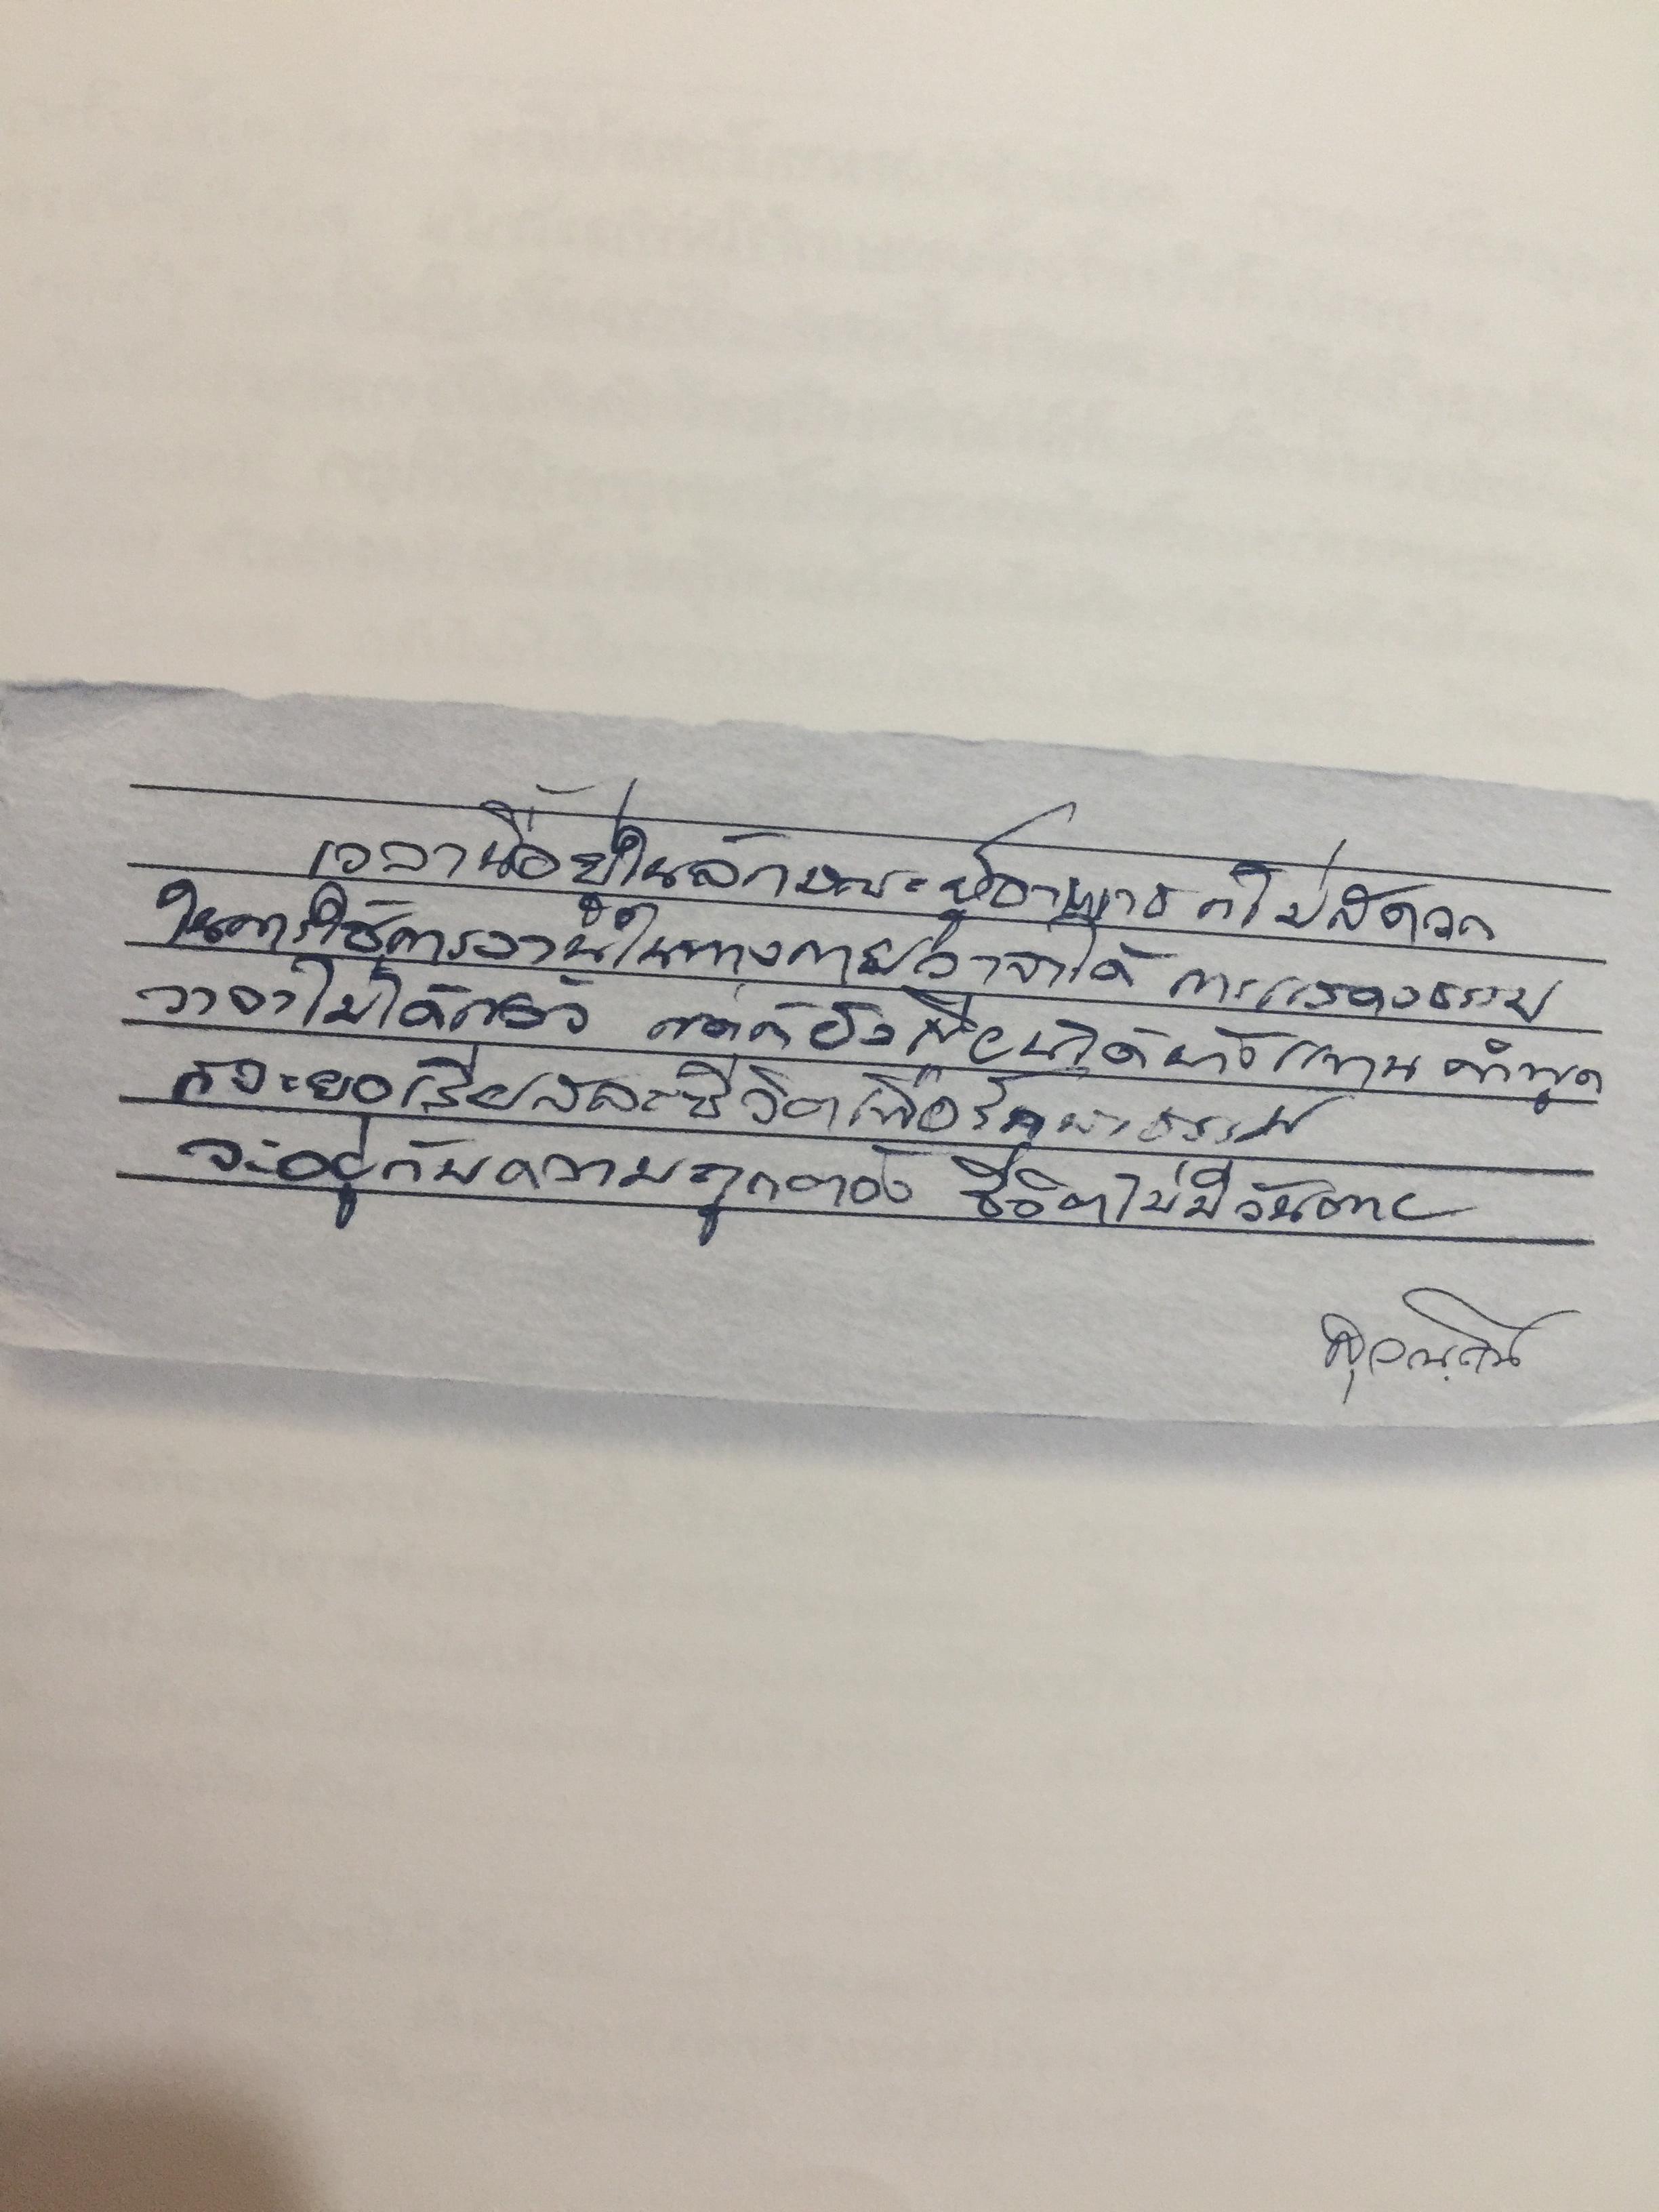 เวลานี้อยู่ในลักษณะผู้อาพาธ ก็ไม่สดวก
ในการใช้การงานในทางกายวาจาได้ การแสดงธรรม
วาจาไม่ได้แล้ว แต่ก็ยังเขียนได้บ้างแทน คำพูด
ก็จะยอมเสียสละชีวิตเพื่อรักษาธรรม
จะอยู่กับความถูกต้อง ชีวิตไม่มีวันตาย